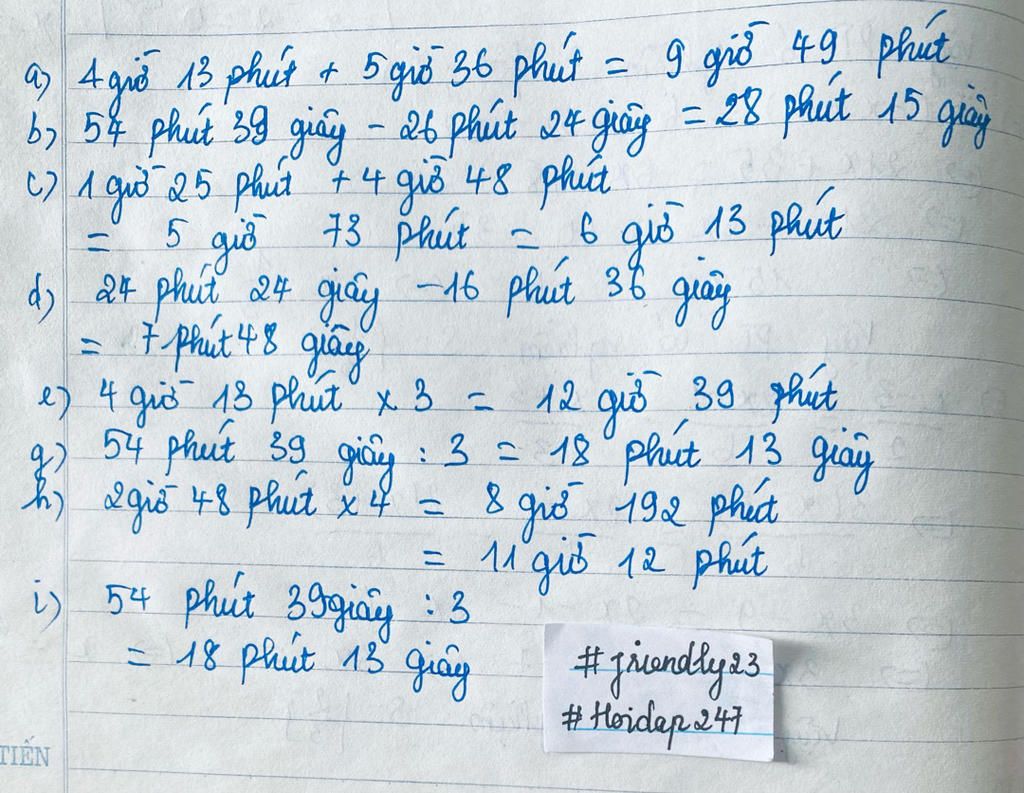 a) 4 giờ 13 phút + 5 giờ 36 phút = 9 giờ 49 phút
b) 54 phút 39 giây - 26 phút 24 giây = 28 phút 15 giây
c) 1 giờ 25 phút + 4 giờ 48 phút
= 5 giờ 73 phút = 6 giờ 13 phút
d) 24 phút 24 giây - 16 phút 36 giây
= 7 phút 48 giây
e) 4 giờ 13 phút x 3 = 12 giờ 39 phút
g) 54 phút 39 giây : 3 = 18 phút 13 giây
h) 2 giờ 48 phút x 4 = 8 giờ 192 phút
= 11 giờ 12 phút
i) 54 phút 39 giây : 3
= 18 phút 13 giây
#friendly23
#Hoidap247
TIẾN